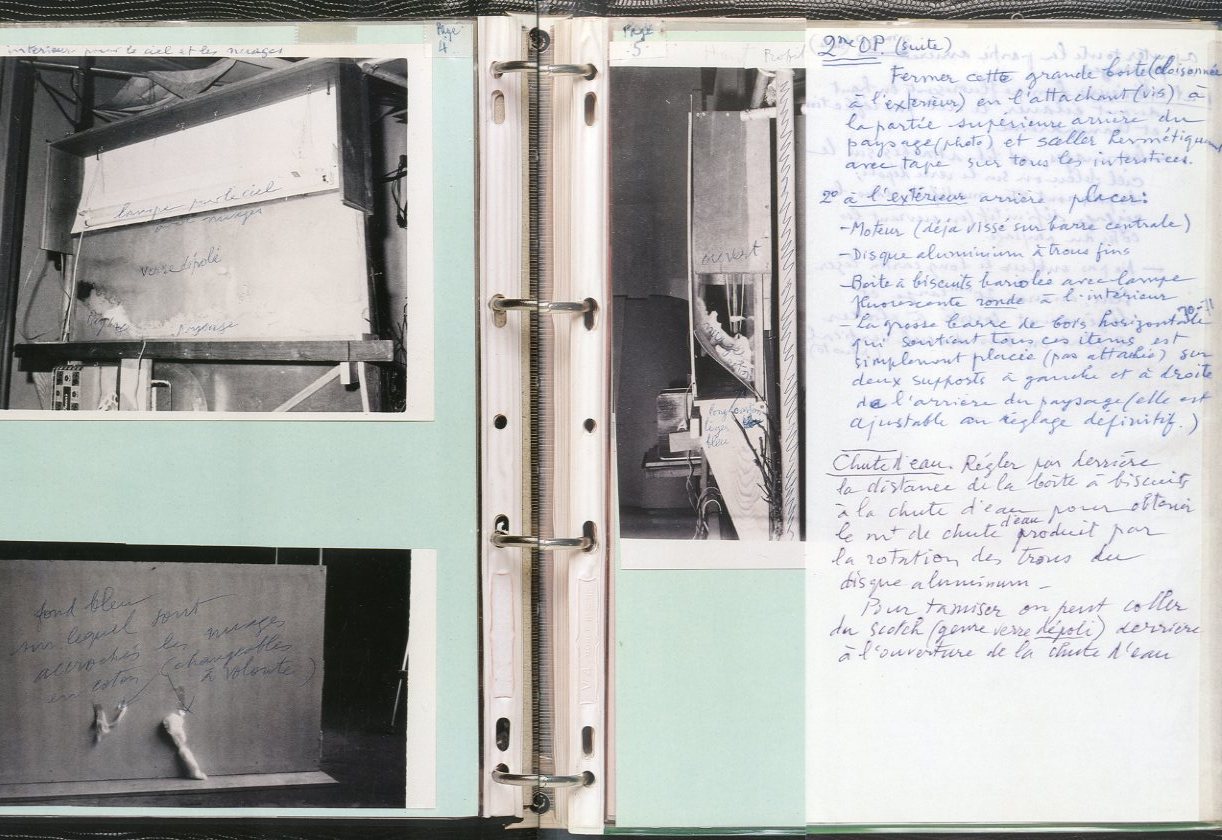 Page
4
interieur pour le ciel et les nuages
lampe pour le ciel
avec nuages
verre dépoli
Paysage
fond bleu
sur lequel sont
accrochés les nuages
en coton (changeables
à volonté)
Page
5
Profil
ouvert
coton
léger
bleu
2me OP. (suite)
Fermer cette grande boite (cloisonnée
à l'exterieur) en l'attachant (vis) à
la partie supérieure arrière du
paysage (photo) et sceller hermétiquement
avec tape sur tous les interstices.
2° à l'extérieur arrière placer:
- Moteur (déjà vissé sur barre centrale)
- Disque aluminium à trous fins
- Boite à biscuits bariolée avec lampe
fluorescente ronde à l'intérieur
- La grosse barre de bois horizontale
qui soutient tous ces items est
simplement placée (pas attachée) sur
deux supports à gauche et à droite
de l'arrière du paysage (elle est
ajustable au réglage définitif.)
Chute d'eau. Régler par derrière
la distance de la boite à biscuits
à la chute d'eau pour obtenir
le mvt de chute d'eau produit par
la rotation des trous du
disque aluminum -
Pour tamiser on peut coller
du scotch (genre verre dépoli) derrière
à l'ouverture de la chute d'eau